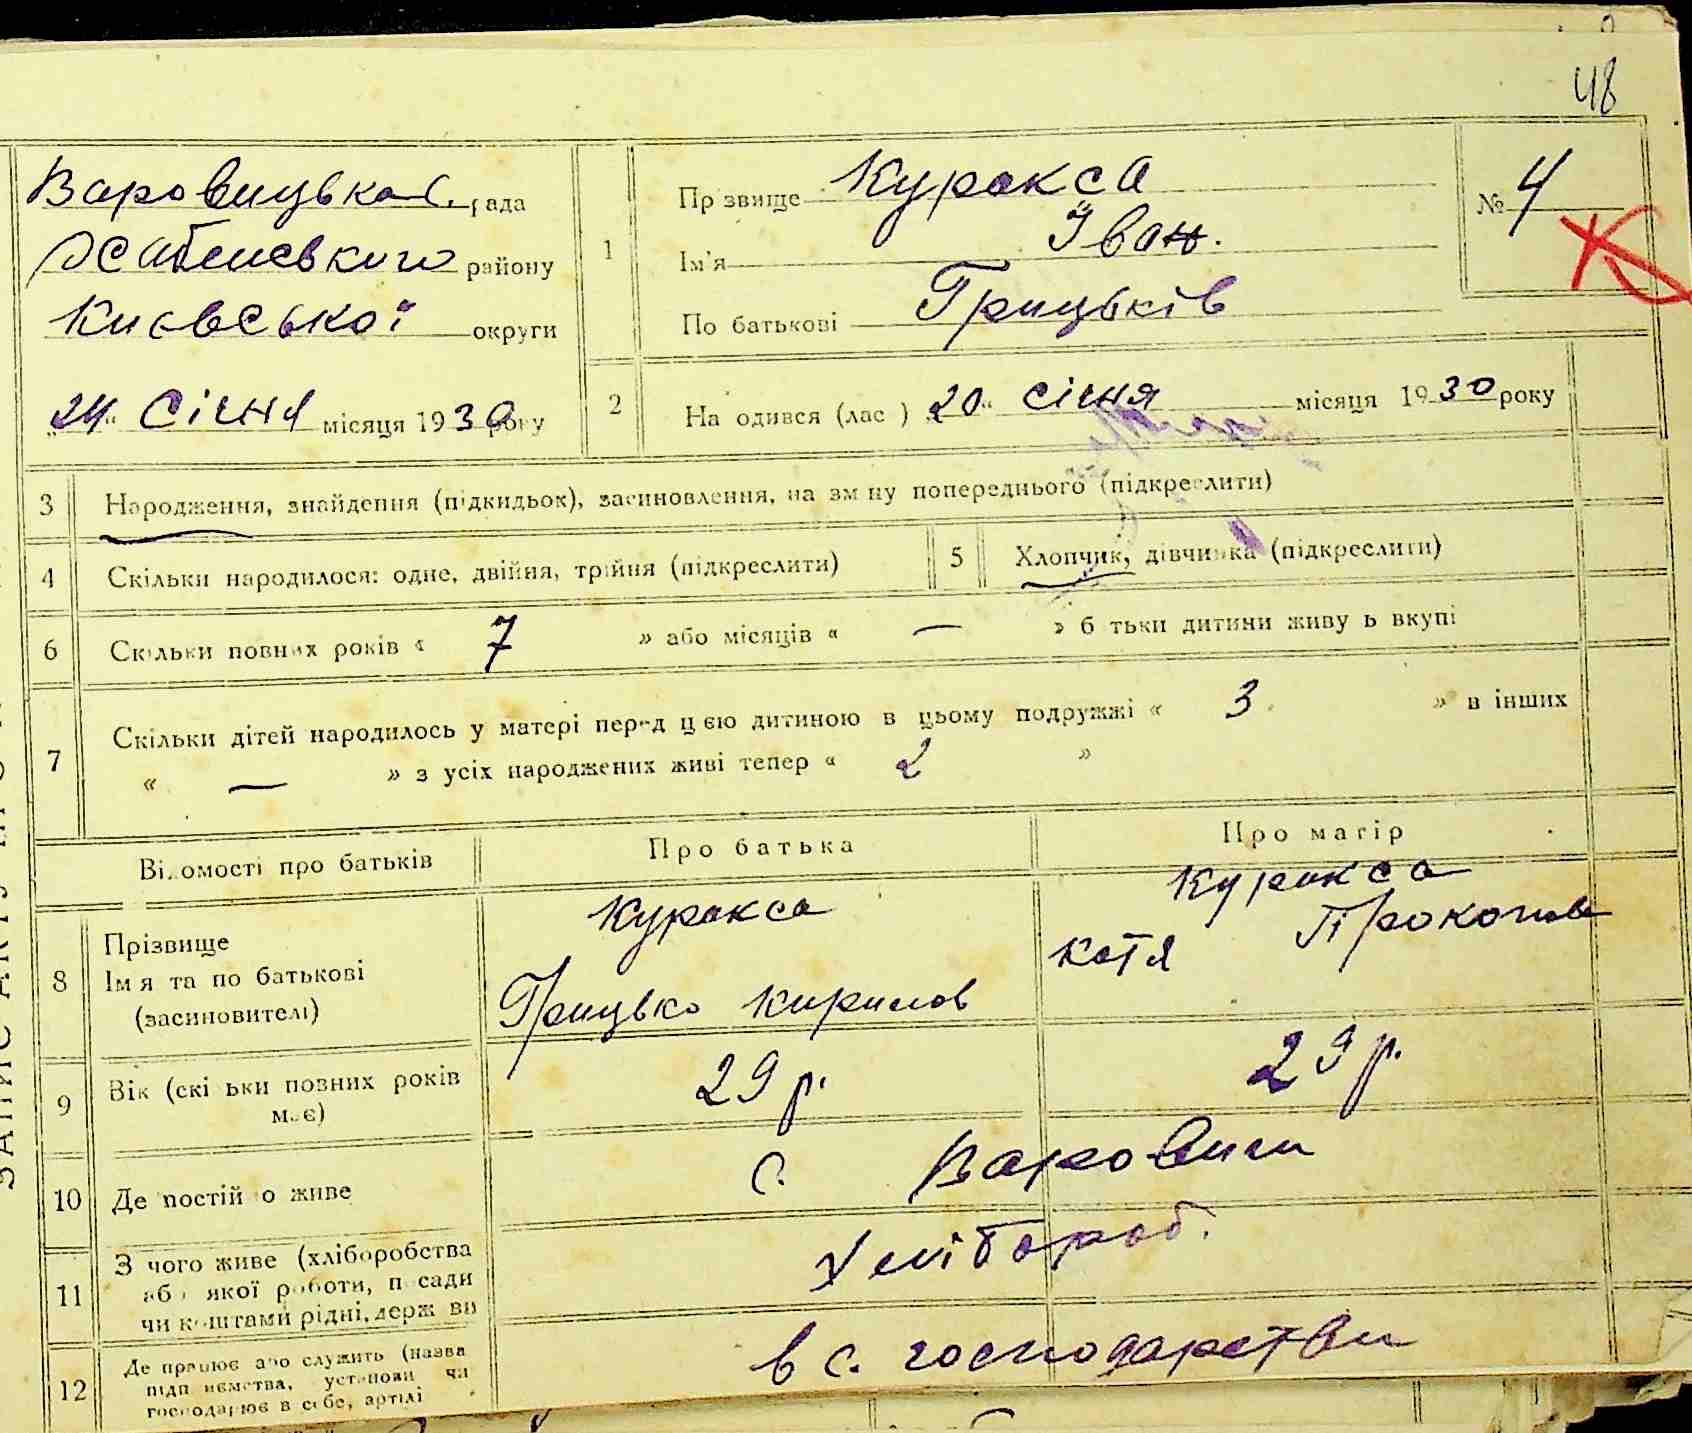 48
Варовицька с. рада
Хабенського району
Київської округи
„24“ Січня місяця 1930 року
1
Прізвище Куракса
Ім'я Іван.
По батькові Грицьків
№ 4
2
На одився (лас ) 20“ січня місяця 1930 року
3 Народження, знайдення (підкидьок), засиновлення, на зм ну попереднього (підкреслити)
4 Скільки народилося: одне, двійня, трійня (підкреслити)
5 Хлопчик, дівчинка (підкреслити)
6 Скільки повних років « 7 » або місяців « — » б тьки дитини живу ь вкупі
7 Скільки дітей народилось у матері перед цією дитиною в цьому подружжі « 3 » в інших
« — » з усіх народжених живі тепер « 2 »
Відомості про батьків
Про батька
Про матір
8 Прізвище
Ім я та по батькові
(засиновителі)
Куракса
Грицько Кирилов
Куракса
Катя Прокопів
9 Вік (скі ьки повних років
має)
29 р.
29 р.
10 Де постій о живе
с. Варовичі
11 З чого живе (хліборобства
або якої роботи, посади
чи коштами рідні, держ ви
Хлібороб.
12 Де працює або служить (назва
підп иємства, установи чи
господарює в себе, артілі
в с. господарстві